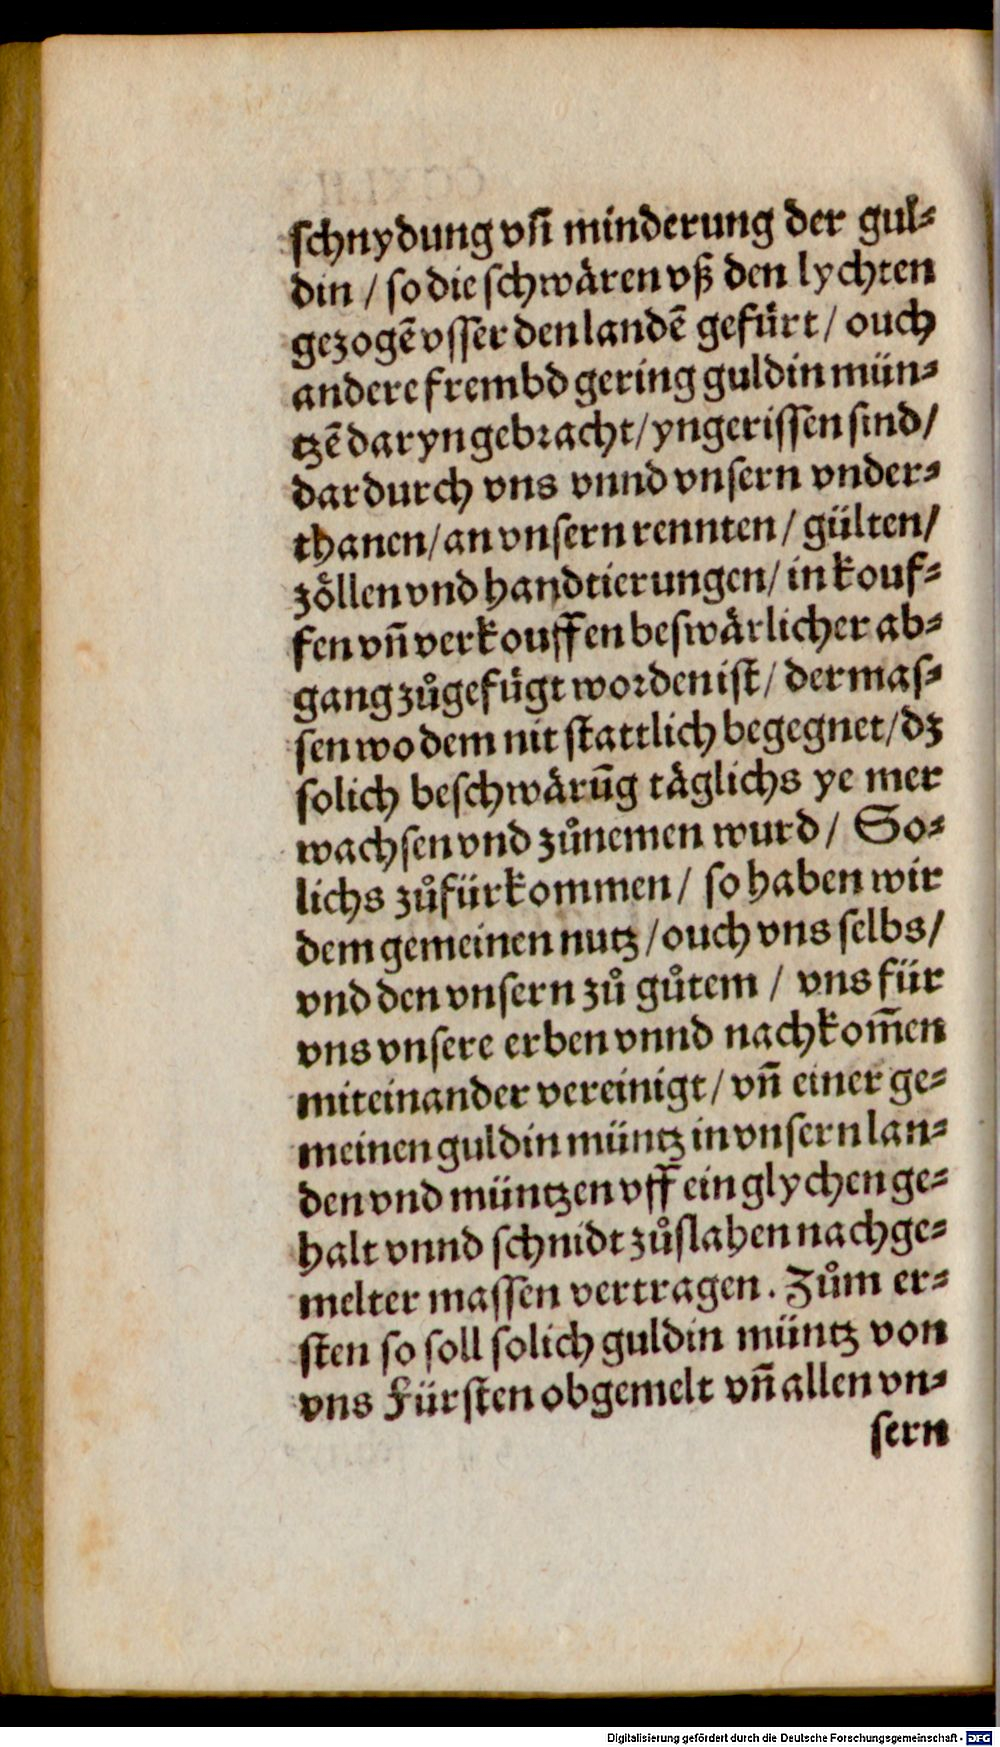 schnydung vñ minderung der gul⸗
din / so die schwären vß den lychten
gezogẽ vsser den landẽ gefürt / ouch
andere frembd gering guldin mün⸗
tzẽ daryn gebracht / yngerissen sind /
dardurch vns vnnd vnsern vnder⸗
thanen / an vnsern rennten / gülten /
zöllen vnd handtierungen / in kouf⸗
fen vñ verkouffen beswärlicher ab⸗
gang zůgefügt worden ist / dermas⸗
sen wo dem nit stattlich begegnet / dz
solich beschwärũg täglichs ye mer
wachsen vnd zůnemen wurd / So⸗
lichs zůfürkommen / so haben wir
dem gemeinen nutz / ouch vns selbs /
vnd den vnsern zů gůtem / vns für
vns vnsere erben vnnd nachkom̃en
miteinander vereinigt / vñ einer ge⸗
meinen guldin müntz in vnsern lan⸗
den vnd müntzen vff ein glychen ge⸗
halt vnnd schnidt zůslahen nachge⸗
melter massen vertragen. Zům er⸗
sten so soll solich guldin müntz von
vns Fürsten obgemelt vñ allen vn⸗
sern
Digitalisierung gefördert durch die Deutsche Forschungsgemeinschaft - DFG